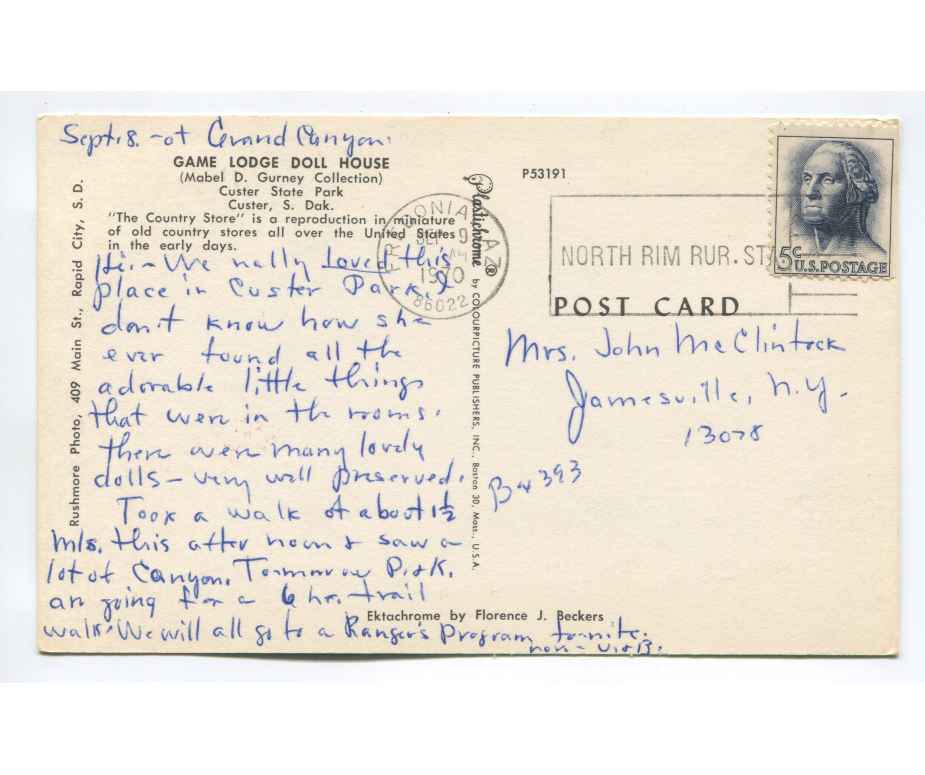 Sept. 8. - at Grand Canyon.
GAME LODGE DOLL HOUSE
(Mabel D. Gurney Collection)
Custer State Park
Custer, S. Dak.
"The Country Store" is a reproduction in miniature
of old country stores all over the United States
in the early days.
Hi. - We really Loved this
place in Custer Park. I
don't know how she
ever found all the
adorable little things
that were in the rooms.
there were many lovely
dolls - very well preserved.
Took a walk of about 1½
mls. this afternoon & saw a
lot of Canyon. Tomorrow P. & K.
are going for a 6 hr. trail
walk. We will all go to a Ranger's Program tonite.
Rushmore Photo, 409 Main St., Rapid City, S. D.
Ektachrome by Florence J. Beckers
Plastichrome® by COLOURPICTURE PUBLISHERS, INC., Boston 30, Mass., U.S.A.
P53191
FREDONIA, AZ
SEP 9
AM
1970
86022
NORTH RIM RUR. STA
5¢ U.S. POSTAGE
POST CARD
Mrs. John McClintock
Jamesville, N.Y.
13078
Box 393